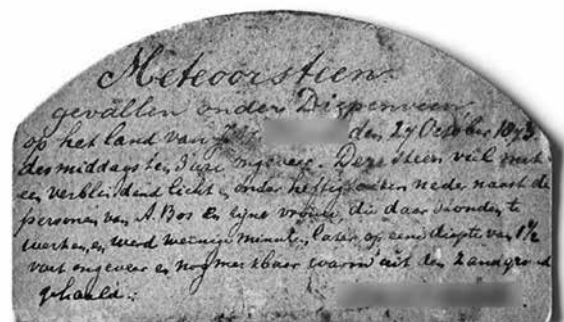 Meteoorsteen
gevallen onder Diepenveen
op het land van den 27 October 1873
des middags ten 3 ure ongeveer. Deze steen viel met
een verblindend licht onder heftig neder naast de
personen van A. Bos en zijne vrouw, die daar stonden te
werken, en werd weinige minuten later, op eene diepte van 1½
voet ongeveer en nog merkbaar warm uit den zandgrond
gehaald.